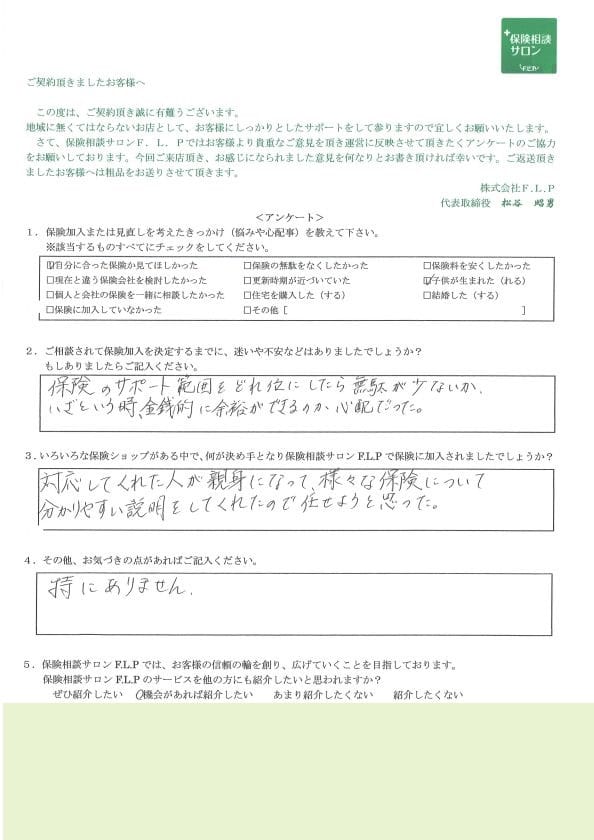 保険相談
サロン
F.L.P
ご契約頂きましたお客様へ
この度は、ご契約頂き誠に有難うございます。
地域に無くてはならないお店として、お客様にしっかりとしたサポートをして参りますので宜しくお願いいたします。
さて、保険相談サロンF．L．Pではお客様より貴重なご意見を頂き運営に反映させて頂きたくアンケートのご協力
をお願いしております。今回ご来店頂き、お感じになられました意見を何なりとお書き頂ければ幸いです。ご返送頂き
ましたお客様へは粗品をお送りさせて頂きます。
株式会社F.L.P
代表取締役 松谷 昭男
＜アンケート＞
１．保険加入または見直しを考えたきっかけ（悩みや心配事）を教えて下さい。
※該当するものすべてにチェックをしてください。
☑自分に合った保険か見てほしかった □保険の無駄をなくしたかった □保険料を安くしたかった
□現在と違う保険会社を検討したかった □更新時期が近づいていた ☑子供が生まれた（れる）
□個人と会社の保険を一緒に相談したかった □住宅を購入した（する） □結婚した（する）
□保険に加入していなかった □その他［ ］
２．ご相談されて保険加入を決定するまでに、迷いや不安などはありましたでしょうか？
もしありましたらご記入ください。
保険のサポート範囲をどれ位にしたら無駄が少ないか、
いざという時、金銭的に余裕ができるのか心配だった。
３．いろいろな保険ショップがある中で、何が決め手となり保険相談サロンF.L.Pで保険に加入されましたでしょうか？
対応してくれた人が親身になって、様々な保険について
分かりやすい説明をしてくれたので任せようと思った。
４．その他、お気づきの点があればご記入ください。
特にありません。
５．保険相談サロンF.L.Pでは、お客様の信頼の輪を創り、広げていくことを目指しております。
保険相談サロンF.L.Pのサービスを他の方にも紹介したいと思われますか？
ぜひ紹介したい 機会があれば紹介したい あまり紹介したくない 紹介したくない